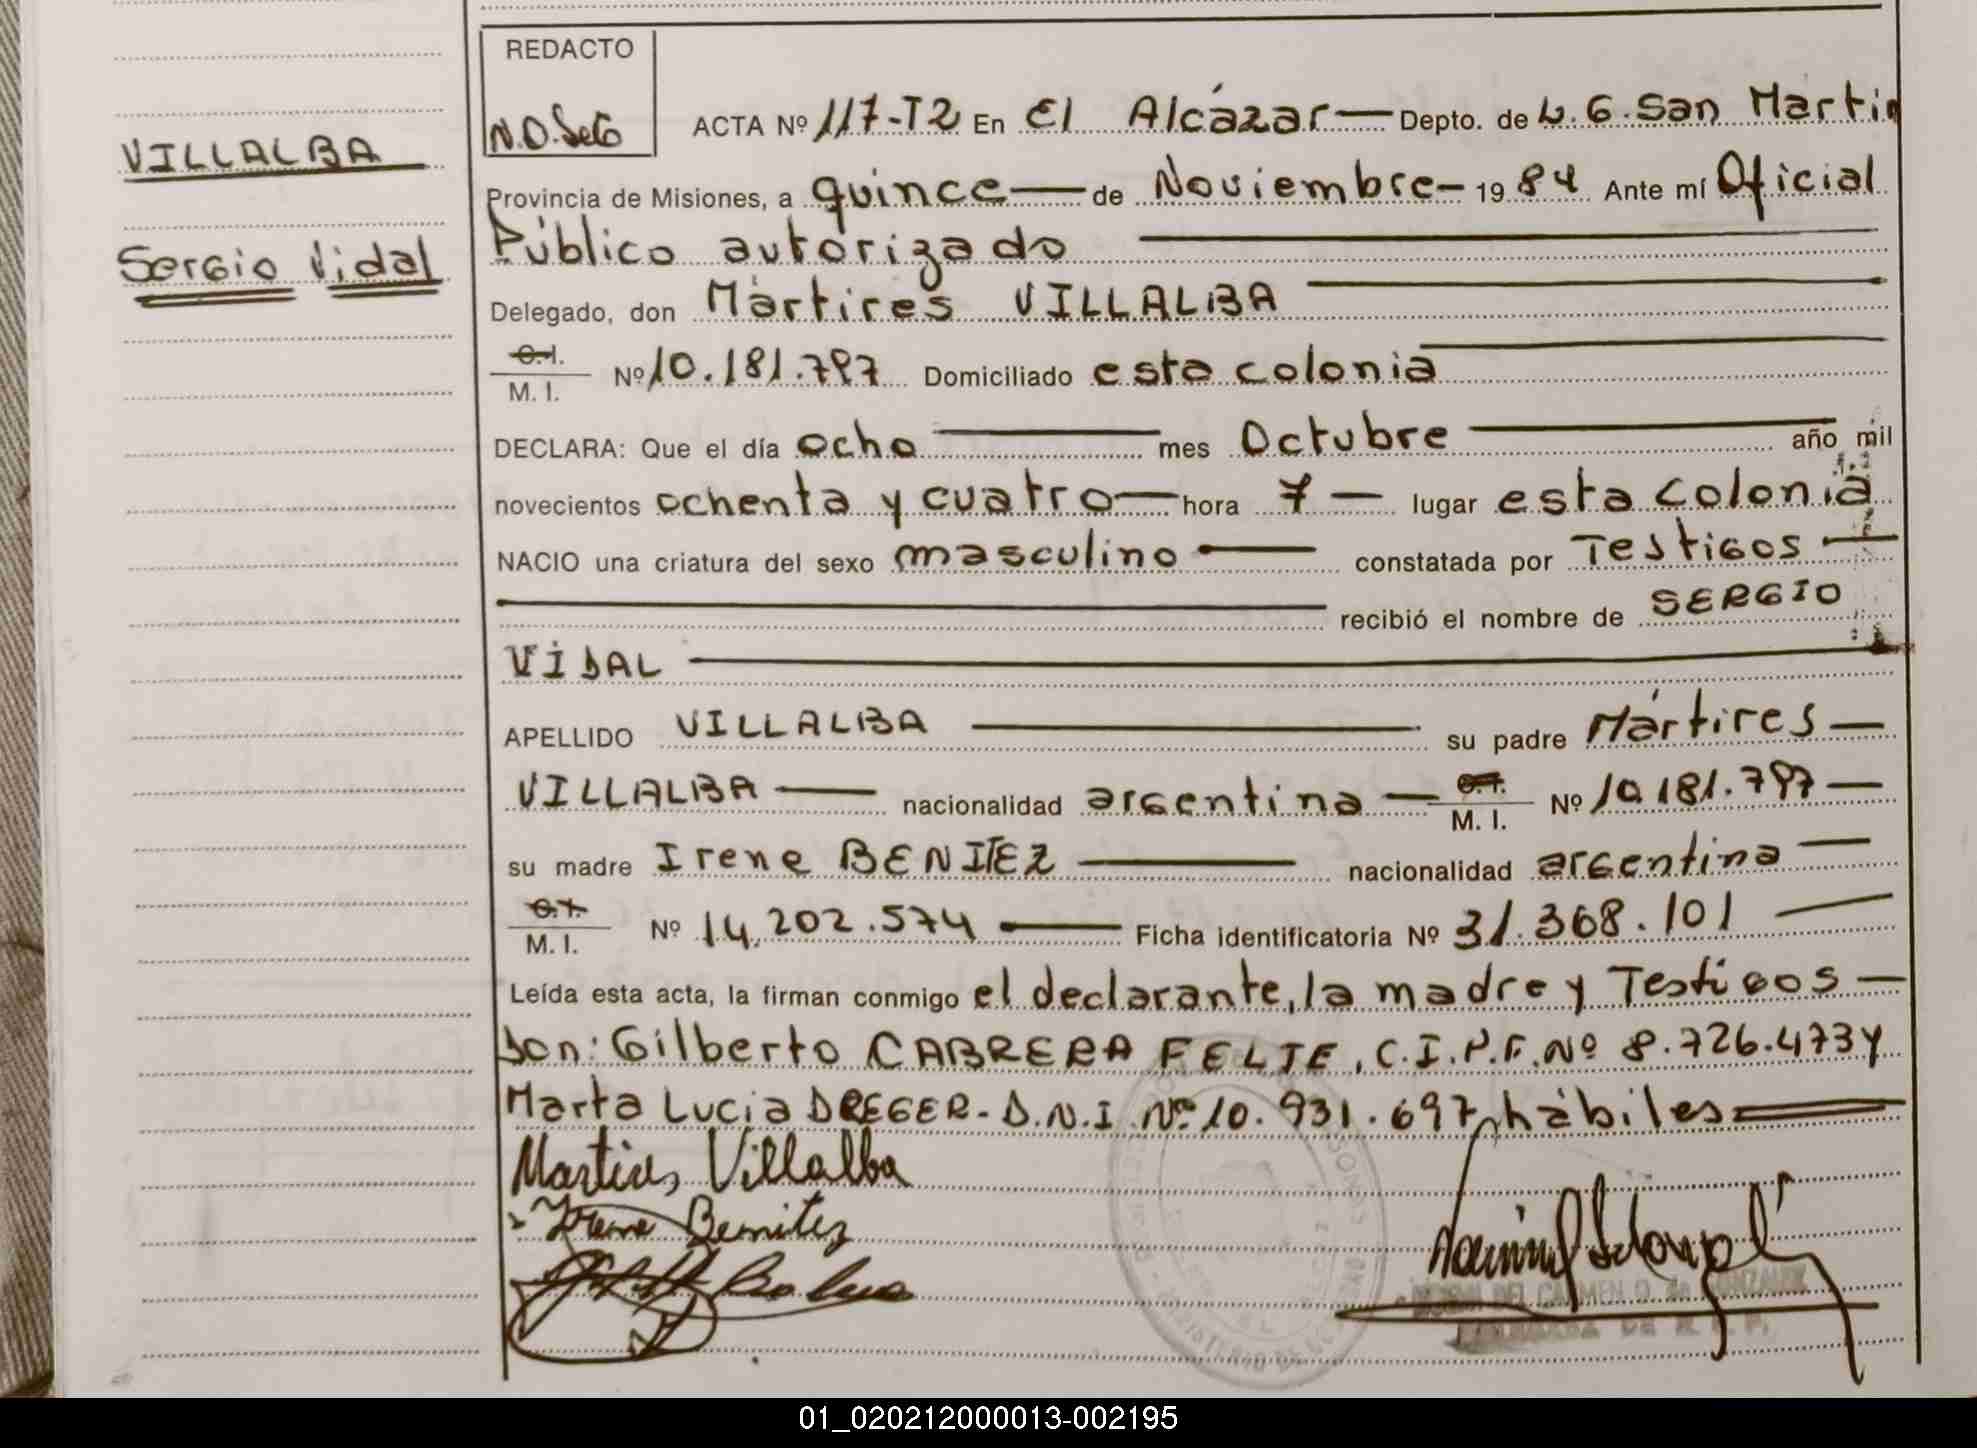 VILLALBA
Sergio Vidal
REDACTO
ACTA Nº 117-T2 En El Alcázar — Depto. de L. G. San Martin
Provincia de Misiones, a quince — de Noviembre — 1984 Ante mí Oficial
Público autorizado
Delegado, don Mártires VILLALBA
C.I.
M. I. Nº 10.181.797 Domiciliado esta colonia
DECLARA: Que el día ocho mes Octubre año mil
novecientos ochenta y cuatro — hora 7 — lugar esta colonia
NACIO una criatura del sexo masculino — constatada por Testigos —
recibió el nombre de SERGIO
VIDAL
APELLIDO VILLALBA su padre Mártires —
VILLALBA — nacionalidad argentina — C.I. M. I. Nº 10.181.797 —
su madre Irene BENITEZ — nacionalidad argentina —
C.I.
M. I. Nº 14.202.574 — Ficha identificatoria Nº 31.368.101 —
Leída esta acta, la firman conmigo el declarante, la madre y Testigos —
don: Gilberto CABRERA FELJE, C.I.P.F. Nº 8.726.473 y
Marta Lucia DREGER - D.N.I. Nº 10.931.697, hábiles
Martires Villalba
Irene Benitez
DEL CARMEN O. de GONZALEZ
01_020212000013-002195